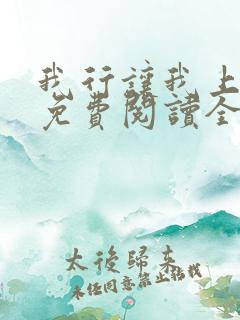 我行讓我上
免費閱讀全
太後歸來
未經同意禁止转载